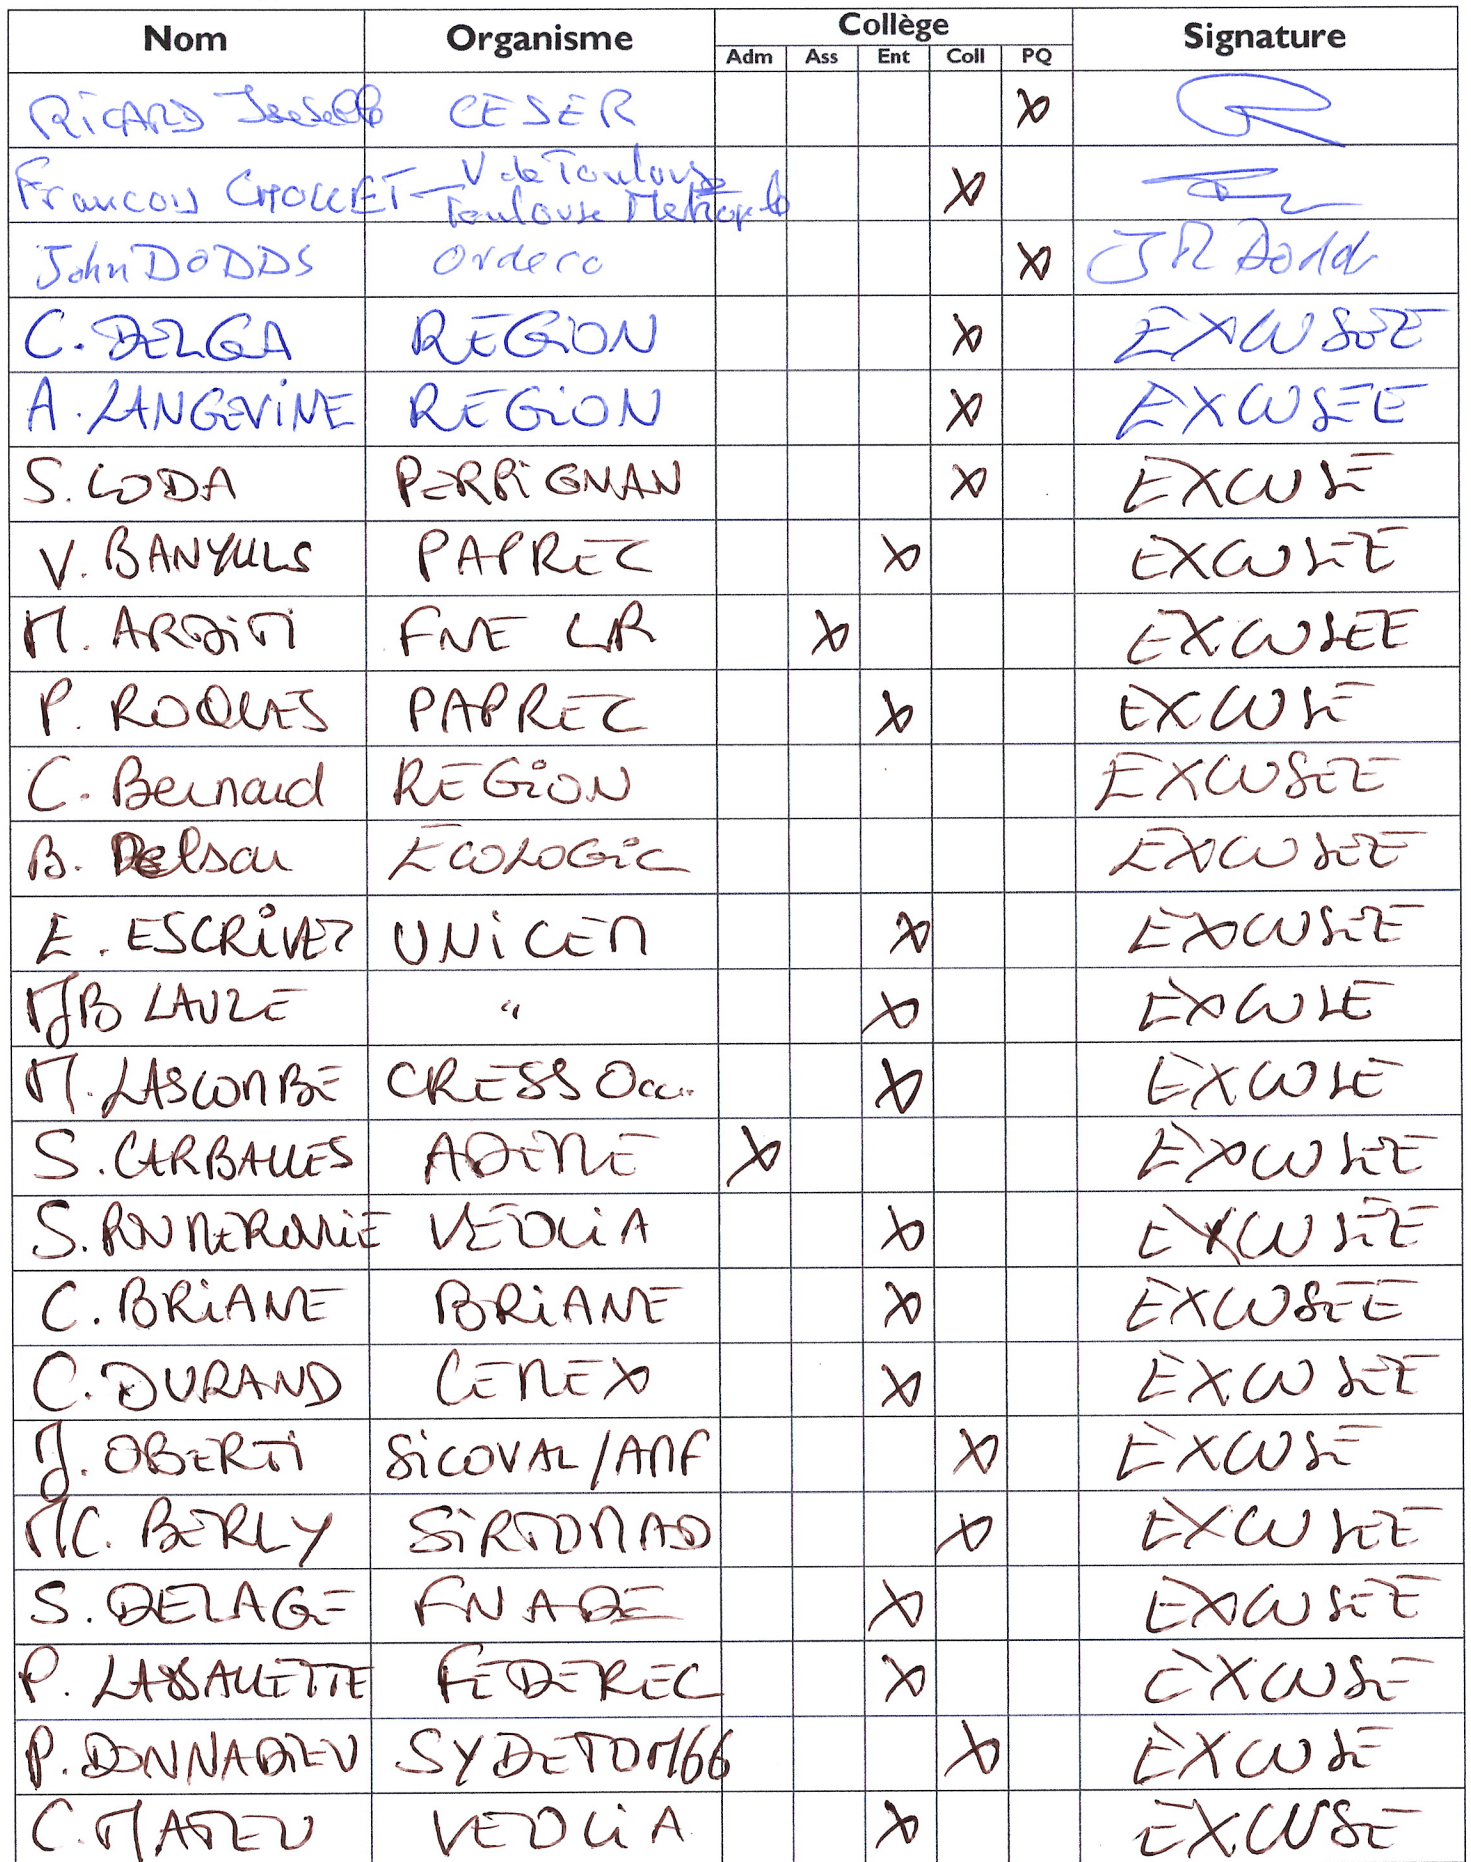 Nom Organisme Collège Signature
Adm Ass Ent Coll PQ
RICARD CESER X
Francois CHOLLET V de Toulouse
Toulouse Métropole X
John DODDS Ordeco X JR Dodds
C. DELGA REGION X EXCUSÉE
A. LANGEVINE REGION X EXCUSÉE
S. CODA PERPIGNAN X EXCUSE
V. BANYULS PAPREC X EXCUSÉE
M. ARDITI FNE LR X EXCUSEE
P. ROQUES PAPREC X EXCUSE
C. Bernard REGION EXCUSEE
B. ECOLOGIC EXCUSEE
E. ESCRIVEZ UNICEM X EXCUSEE
JB LAUZE " X EXCUSE
M. LASCOMBE CRESS Occ. X EXCUSE
S. CARBALLES ADEME X EXCUSEE
S. VEOLIA X EXCUSÉE
C. BRIANE BRIANE X EXCUSEE
C. DURAND CEMEX X EXCUSEE
J. OBERTI SICOVAL/AMF X EXCUSE
MC. BERLY SIRTOMAD X EXCUSEE
S. DELAGE FNADE X EXCUSEE
P. LASSALLETTE FEDEREC X EXCUSE
P. DONNADIEU SYDETOM66 X EXCUSE
C. MATEU VEOLIA X EXCUSE